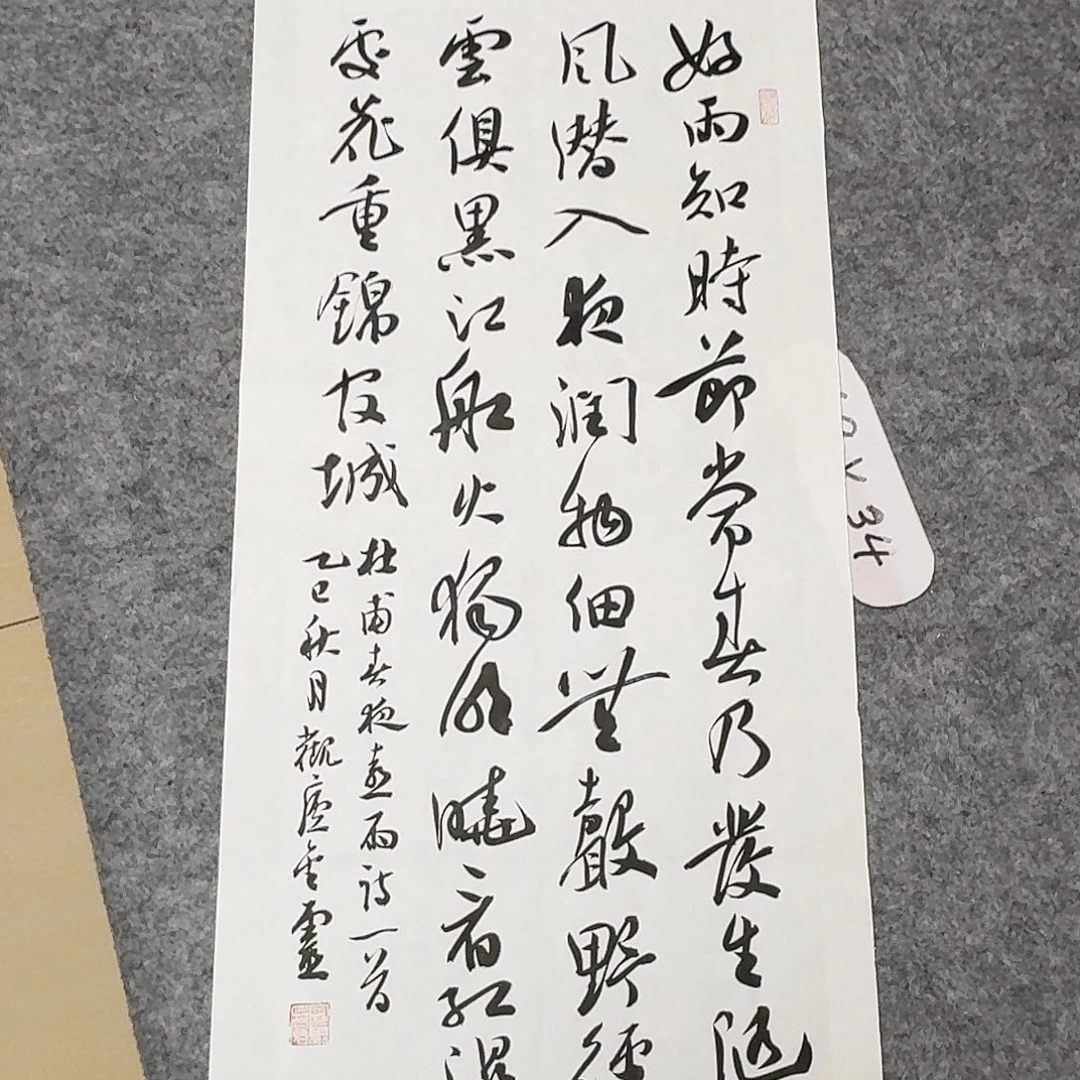 好雨知時節當春乃發生随
風潜入夜潤物細無聲野徑
雲俱黑江船火獨明曉看紅濕
處花重錦官城
杜甫春夜喜雨詩一首
乙巳秋月觀靈
34